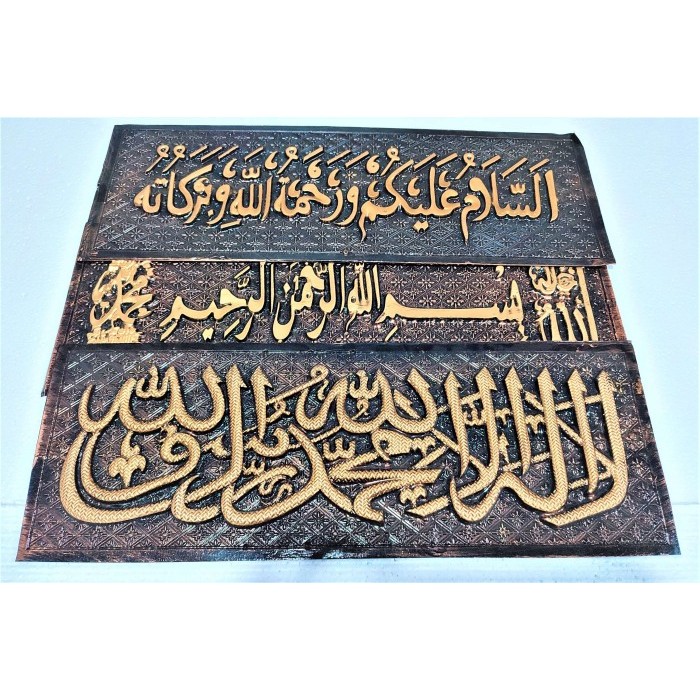 اَلسَّلَامُ عَلَيْكُمْ وَرَحْمَةُ اللّٰهِ وَبَرَكَاتُهُ
محمد بِسْمِ اللّٰهِ الرَّحْمٰنِ الرَّحِيمِ الله
لا اله الا الله محمد رسول الله